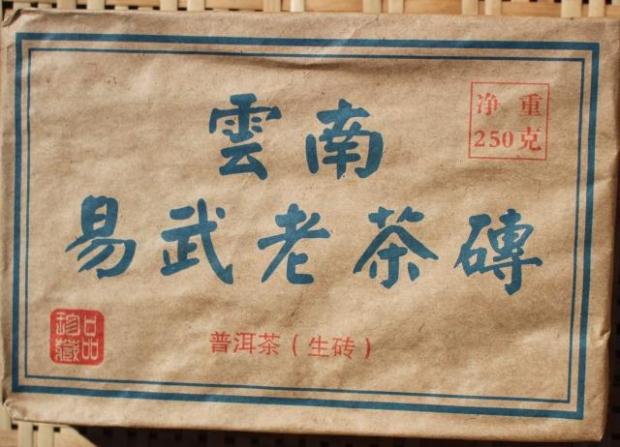 雲南
净重
250克
易武老茶磚
普洱茶（生砖）
珍藏品